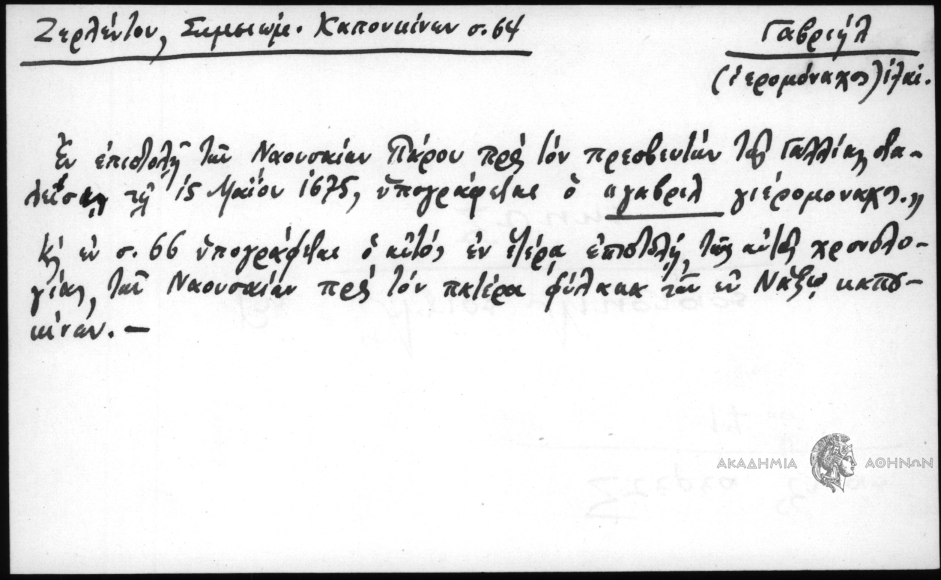 Ζερλέντου, Σημειώμ. Καπουκίνων σ. 64
Γαβριήλ
(ἱερομόναχος)
Ἐν ἐπιστολῇ τῶν Ναουσαίων Πάρου πρὸς τὸν πρεσβευτὴν τῆς Γαλλίας στα-
λείσῃ τῇ 15 Μαΐου 1675, ὑπογράφεται ὁ αγαβριλ γιέρομοναχος „
Κ ἐν σ. 66 ὑπογράφεται ὁ αὐτὸς ἐν ἑτέρᾳ ἐπιστολῇ, τῆς αὐτῆς χρονολο-
γίας, τῶν Ναουσαίων πρὸς τὸν πατέρα φύλακα τῶν ἐν Νάξῳ καπου-
κίνων. —
ΑΚΑΔΗΜΙΑ ΑΘΗΝΩΝ